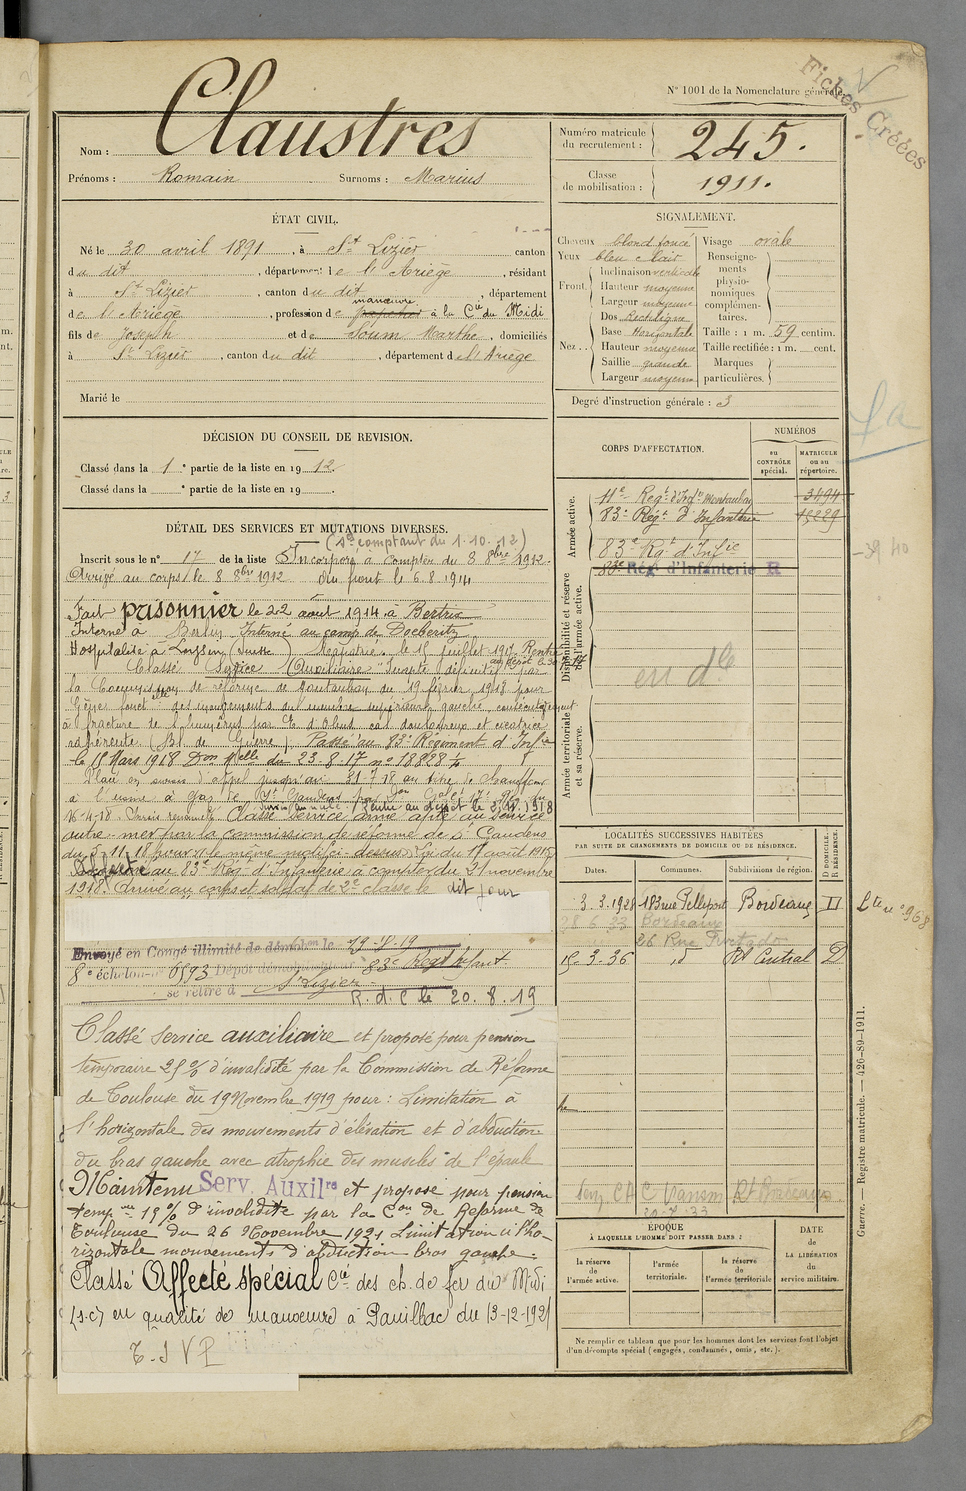 N° 1001 de la Nomenclature générale.
Fiches Créées
Nom : Claustres
Prénoms : Romain Surnoms : Marius
Numéro matricule du recrutement : 245.
Classe de mobilisation : 1911.
ÉTAT CIVIL.
Né le 30 avril 1891, à St Lizier canton
du dit, département de l'Ariège, résidant
à St Lizier, canton du dit, département
manœuvre
de l'Ariège, profession de à la Cie du Midi
fils de Joseph et de Soum Marthe, domiciliés
à St Lizier, canton du dit, département de l'Ariège
Marié le
SIGNALEMENT.
Cheveux blond foncé
Yeux bleu clair
Front. Inclinaison verticale
Hauteur moyenne
Largeur moyenne
Nez. Dos Rectiligne
Base Horizontale
Hauteur moyenne
Saillie grande
Largeur moyenne
Visage ovale
Renseignements physionomiques complémentaires.
Taille : 1 m. 59 centim.
Taille rectifiée : 1 m. cent.
Marques particulières.
Degré d'instruction générale : 3
DÉCISION DU CONSEIL DE REVISION.
Classé dans la 1e partie de la liste en 1912.
Classé dans la e partie de la liste en 19 .
CORPS D'AFFECTATION.
NUMÉROS
au CONTRÔLE spécial.
MATRICULE ou au répertoire.
Armée active.
11e Régt d'Infie Montauban 3494
83e Régt d'Infanterie
83e Rgt d'Infie
83e Rég. d'Infanterie R
Disponibilité et réserve de l'armée active.
en dle
Armée territoriale et sa réserve.
DÉTAIL DES SERVICES ET MUTATIONS DIVERSES.
(Se comptant du 1.10.12)
Inscrit sous le n° 17 de la liste Incorporé à compter du 8 8bre 1912.
Arrivé au corps le 8 8bre 1912. Au front le 6.8.1914
Fait prisonnier le 22 août 1914 à Bertrix
Interné à Berlin Interné au camp de Doeberitz
Hospitalisé à Loysin (Suisse) Rapatrié le 15 juillet 1917 Rentré
au dépôt le
Classé Service Auxiliaire Inapte définitif par
la Commission de réforme de Montauban du 19 février 1918 pour
Gêne fonctelle des mouvements du membre supérieur gauche, consécutivement
à fracture de l'humérus par E. d'Obus cal douloureux et cicatrice
adhérente. (Bl. de Guerre) Passé au 83e Régiment d'Infie
le 15 Mars 1918 Don Mlle du 23-8-17 n° 18828 1/4
Placé en sursis d'appel jusqu'au 31-7-18 au titre de Chauffeur
à l'usine à gaz de St Gaudens
16-4-18. Sursis renouvelé. Rentré au dépôt le
Classé service armé apte au service
outre-mer par la commission de réforme de St Gaudens
du 5-11-18 pour le même motif ci-dessus Loi du 17 août 1915
au 83e Rég. d'Infanterie à compter du 21 novembre
1918. Arrivé au corps et soldat de 2e classe le dit jour
Envoyé en Congé illimité de démobon le
8e échelon n° 6593 Dépôt démobilisateur 83e Régt d'Infant
se retire à St Lizier
R. d. C le 20.8.19
Classé Service auxiliaire et proposé pour pension
temporaire 25% d'invalidité par la Commission de Réforme
de Toulouse du 19 Novembre 1919 pour : Limitation à
l'horizontale des mouvements d'élévation et d'abduction
du bras gauche avec atrophie des muscles de l'épaule
Maintenu Serv. Auxilre et proposé pour pension
tempre 15% d'invalidité par la Con de Réforme de
Toulouse du 26 Novembre 1921. Limitation à l'ho-
rizontale mouvements d'abduction bras gauche.
Classé Affecté spécial Cie des ch. de fer du Midi
(s.c) en qualité de manoeuvre à Pauillac du 13-12-1921
LOCALITÉS SUCCESSIVES HABITÉES
PAR SUITE DE CHANGEMENTS DE DOMICILE OU DE RÉSIDENCE.
Dates. Communes. Subdivisions de région. D DOMICILE. R RÉSIDENCE.
3.3.1928 183 rue Pelleport Bordeaux
28.6.33 Bordeaux
26 Rue Furtado
3.36 id Rt Central D
ÉPOQUE
À LAQUELLE L'HOMME DOIT PASSER DANS :
la réserve de l'armée active.
l'armée territoriale.
la réserve de l'armée territoriale
DATE de LA LIBÉRATION du service militaire.
Ne remplir ce tableau que pour les hommes dont les services font l'objet
d'un décompte spécial (engagés, condamnés, omis, etc.).
Guerre. — Registre matricule. — 426-89-1911.